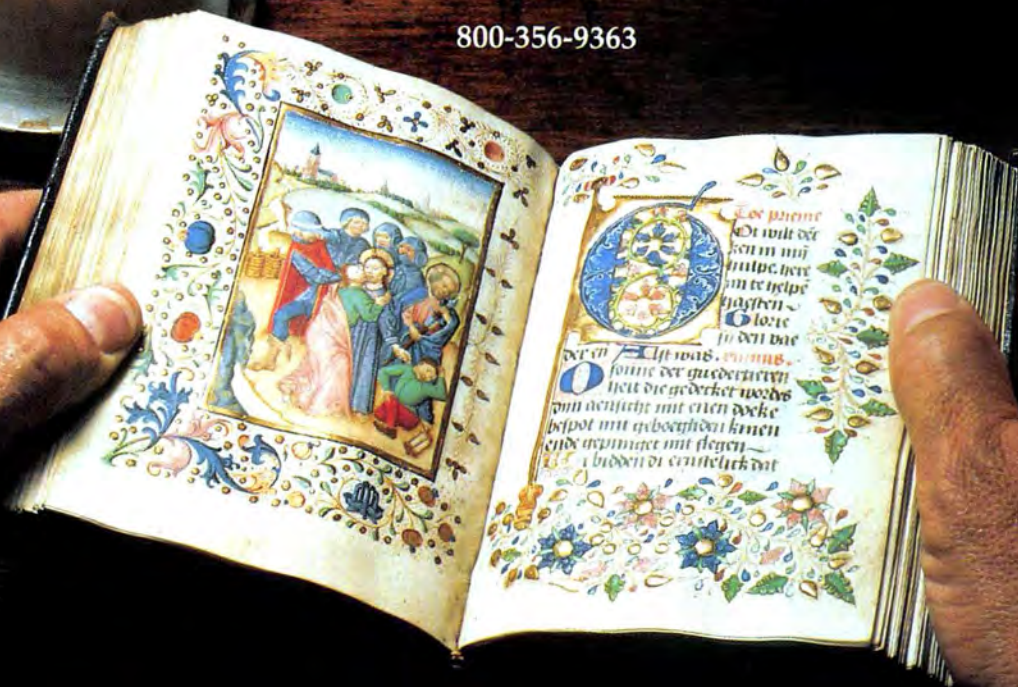 800-356-9363
Toe prieme
Ot wilt dēc
ken in mij
hulpe here
mi te helpē
haesten
Glorie
si den vae
der en Alst was. ymnus.
O sonne der guedertieren
heit die gedecket wordes
dijn aensicht mit enen doeke
bespot mit gheboechden knien
ende gepiniget mit slegen
i bidden di ernstelick dat